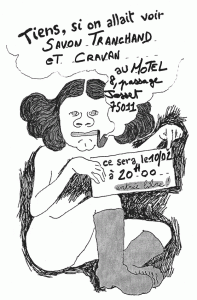 Tiens, si on allait voir
SAVON TRANCHAND
ET CRAVAN...
au MOTEL
8, passage
Josset
75011
ce sera le 10/02
à 20H00
entrée libre !!